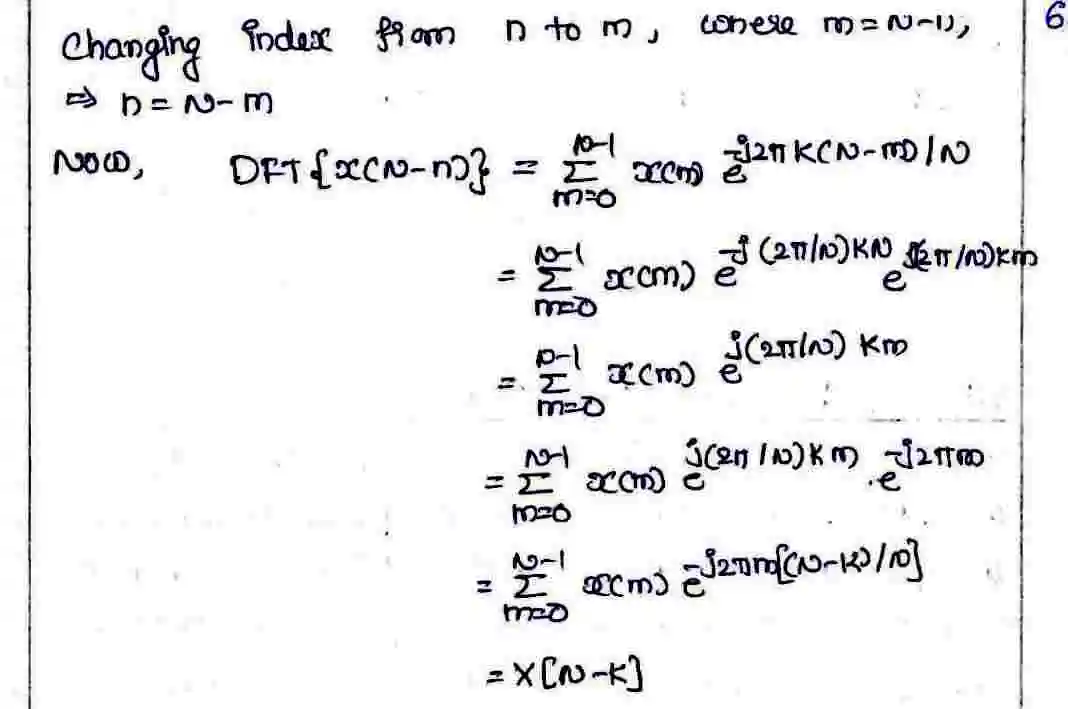 Changing index from n to m, where m=N-n,
⇒ n = N-m
Now, DFT{x(N-n)} = Σ_{m=0}^{N-1} x(m) e^{-j2πK(N-m)/N}
= Σ_{m=0}^{N-1} x(m) e^{-j(2π/N)KN} e^{j(2π/N)Km}
= Σ_{m=0}^{N-1} x(m) e^{j(2π/N)Km}
= Σ_{m=0}^{N-1} x(m) e^{j(2π/N)Km} .e^{-j2πm}
= Σ_{m=0}^{N-1} x(m) e^{-j2πm[(N-K)/N]}
= X[N-K]
6